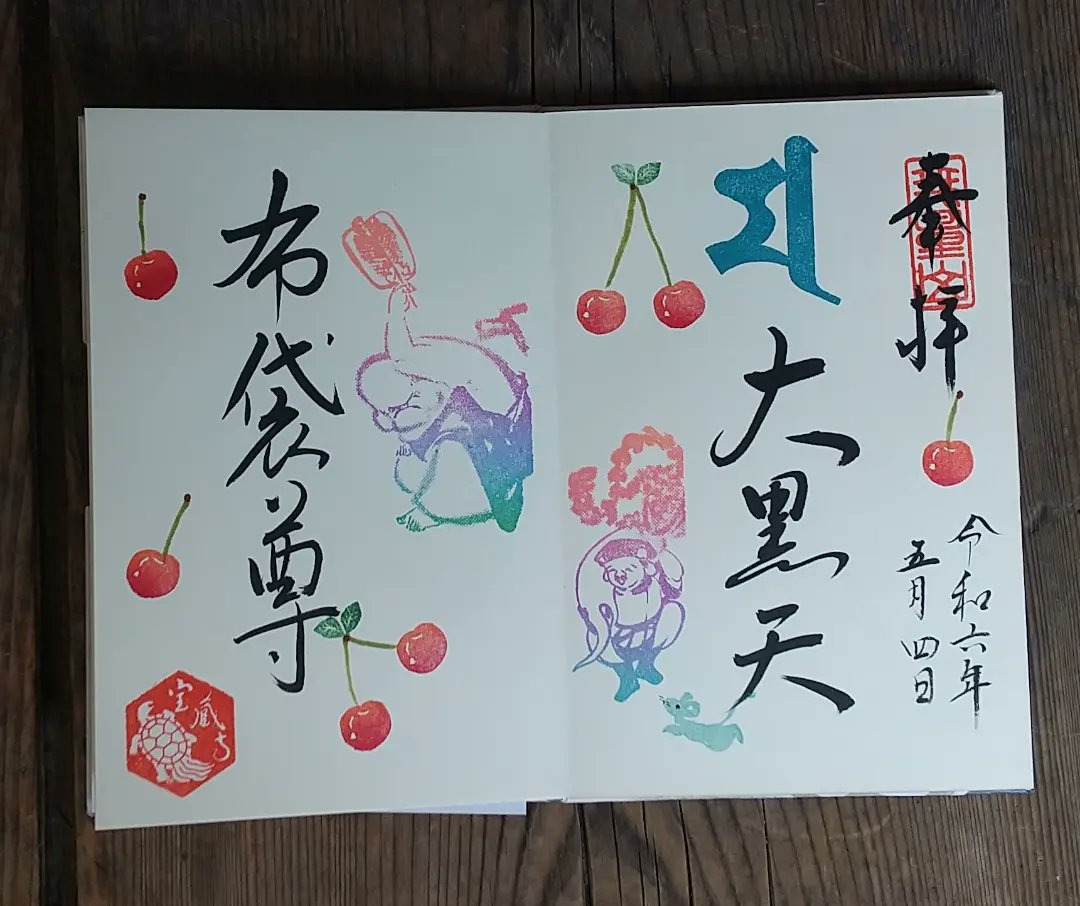 奉拝
令和六年
五月四日
大黒天
布袋尊
宝蔵寺